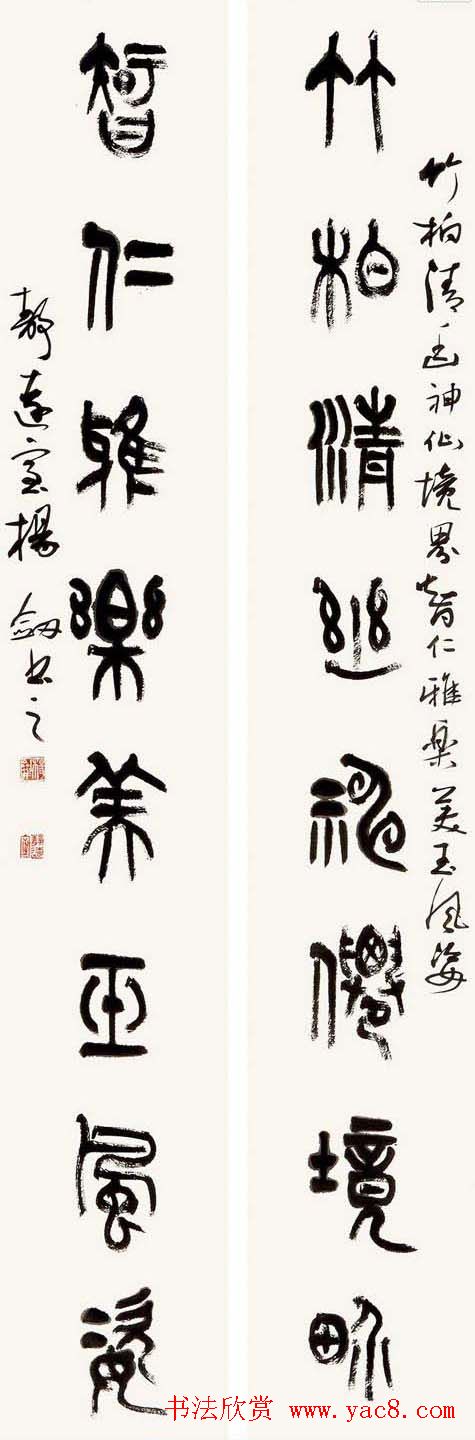 竹柏清幽神仙境界智仁雅樂美玉風姿
竹柏清幽神僊境界
智仁雅樂美玉風姿
靜遠室楊劍書之
书法欣赏 www.yac8.com